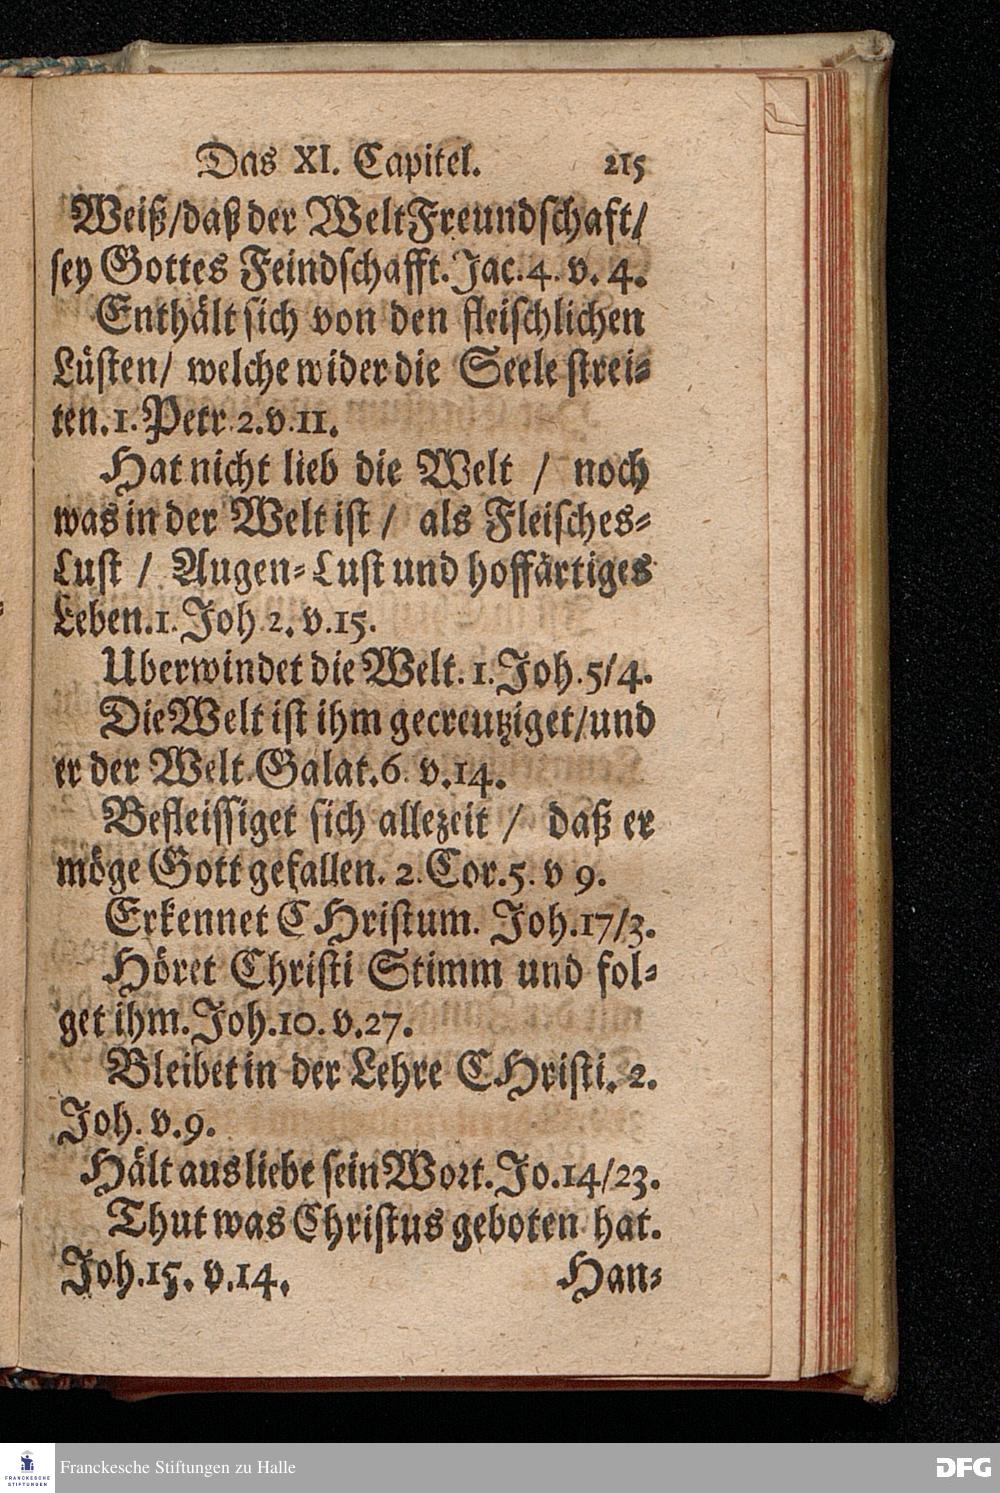 Das XI. Capitel. 215
Weiß/daß der Welt Freundschaft/
sey Gottes Feindschafft. Jac. 4. v. 4.
Enthält sich von den fleischlichen
Lüsten/ welche wider die Seele strei⸗
ten. 1. Petr. 2. v. 11.
Hat nicht lieb die Welt / noch
was in der Welt ist / als Fleisches⸗
Lust / Augen⸗Lust und hoffärtiges
Leben. 1. Joh 2. v. 15.
Uberwindet die Welt. 1. Joh. 5/4.
Die Welt ist ihm gecreutziget/und
er der Welt. Galat. 6. v. 14.
Befleissiget sich allezeit / daß er
möge Gott gefallen. 2. Cor. 5. v 9.
Erkennet CHristum. Joh. 17/3.
Höret Christi Stimm und fol⸗
get ihm. Joh. 10. v. 27.
Bleibet in der Lehre CHristi. 2.
Joh. v. 9.
Hält aus liebe sein Wort. Jo. 14/23.
Thut was Christus geboten hat.
Joh. 15. v. 14. Han⸗
FRANCKESCHE STIFTUNGEN
Franckesche Stiftungen zu Halle
DFG